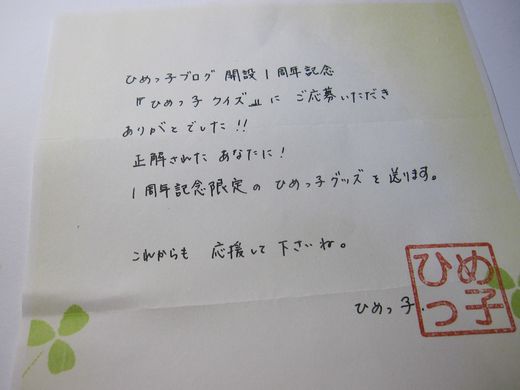 ひめっ子ブログ 開設1周年記念
『ひめっ子クイズ』に ご応募いただき
ありがとでした!!
正解された あなたに!
1周年記念限定の ひめっ子グッズを送ります。
これからも 応援して下さいね。
ひめっ子.
ひめっ子